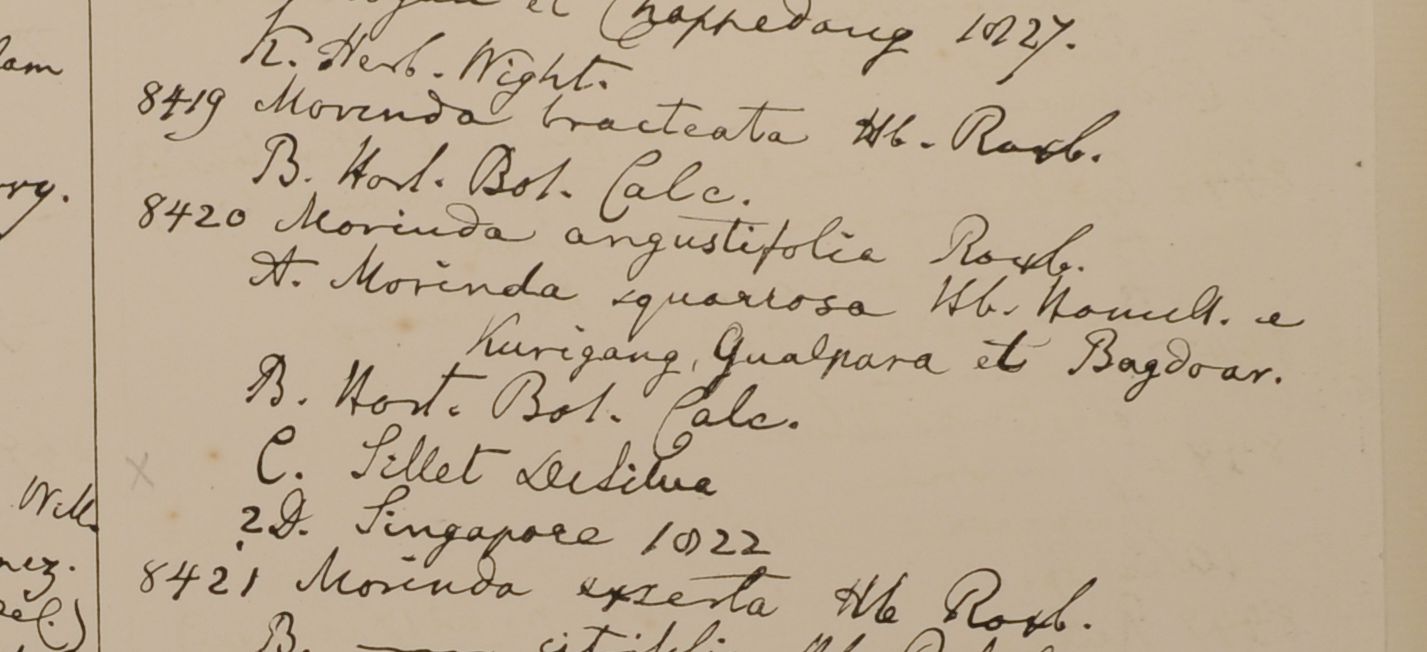 et Chappedong 1827.
K. Herb. Wight.
8419 Morinda bracteata Hb. Roxb.
B. Hort. Bot. Calc.
8420 Morinda angustifolia Roxb.
A. Morinda squarrosa Hb. Hamilt. e
Kurigang, Gualpara et Bagdoar.
B. Hort. Bot. Calc.
C. Sillet DeSilva
?D. Singapore 1822
8421 Morinda exserta Hb Roxb.
B.